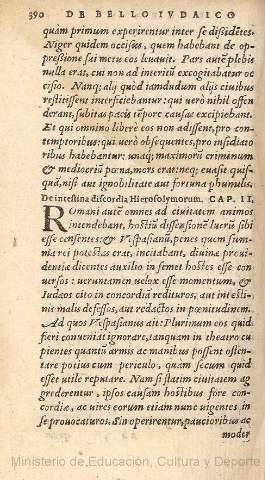 390 DE BELLO IVDAICO
quam primum experirentur inter se dissidētes.
Niger quidem occisus, quem habebant de op-
pressione sui metu eos leuauit. Pars autē plebis
nulla erat, cui non ad interitū excogitabatur oc
casio. Nanq; alij quòd iamdudum alijs ciuibus
restitissent interficiebantur: qui verò nihil offen
derant, subitas pacis tēpore causas excipiebant.
Et qui omnino liberè eos non adissent, pro con-
temptoribus: qui verò obsequentes, pro insidiato
ribus habebantur: unaq; maximorū criminum
& mediocriū pœna, mors erat: neq; euasit quis-
quā, nisi aut ignobilitate aut fortuna phumilis.
De intestina discordia Hierosolymorum. CAP. II.
Romani autē omnes ad ciuitatem animos
intendebant, hostiū dissensionē lucrū sibi
esse censentes: & Vespasianū, penes quem summa
rei potestas erat, incitabant, diuina proui-
dentiæ dicentes auxilio in semet hostes esse con
uersos: ueruntamen uelox esse momentum, &
Iudæos cito in concordiā redituros, aut intesti-
nis malis defessos, aut redactos in pœnitudinem.
Ad quos Vespasianus ait: Plurinum eos quid
fieri conueniat ignorare, tanquam in theatro cu
pientes quantū armis ac manibus possent osten-
tare potius cum periculo, quam secum quid
esset utile reputare. Nam si statim ciuitatem ag
grederentur, ipsos causam hostibus fore con
cordiæ, ac uires eorum etiam nunc uigentes in
se prouocaturos. Sin operirentur, paucioribus ac
moder
Ministerio de Educación, Cultura y Deporte